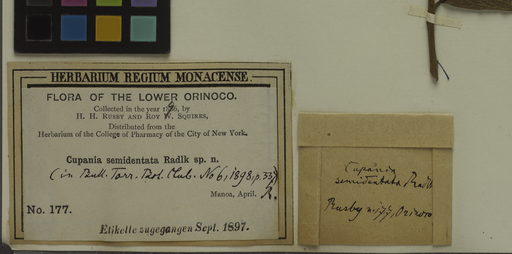 HERBARIUM REGIUM MONACENSE.
FLORA OF THE LOWER ORINOCO.
Collected in the year 1896, by
H. H. RUSBY AND ROY W. SQUIRES,
Distributed from the
Herbarium of the College of Pharmacy of the City of New York.
Cupania semidentata Radlk sp. n.
(in Bull. Torr. Bot. Club. No 6, 1898, p. 337)
Manoa, April. R.
No. 177.
Etikette zugegangen Sept. 1897.
Cupania
semidentata Radlk
Rusby n. 177, Orinoco